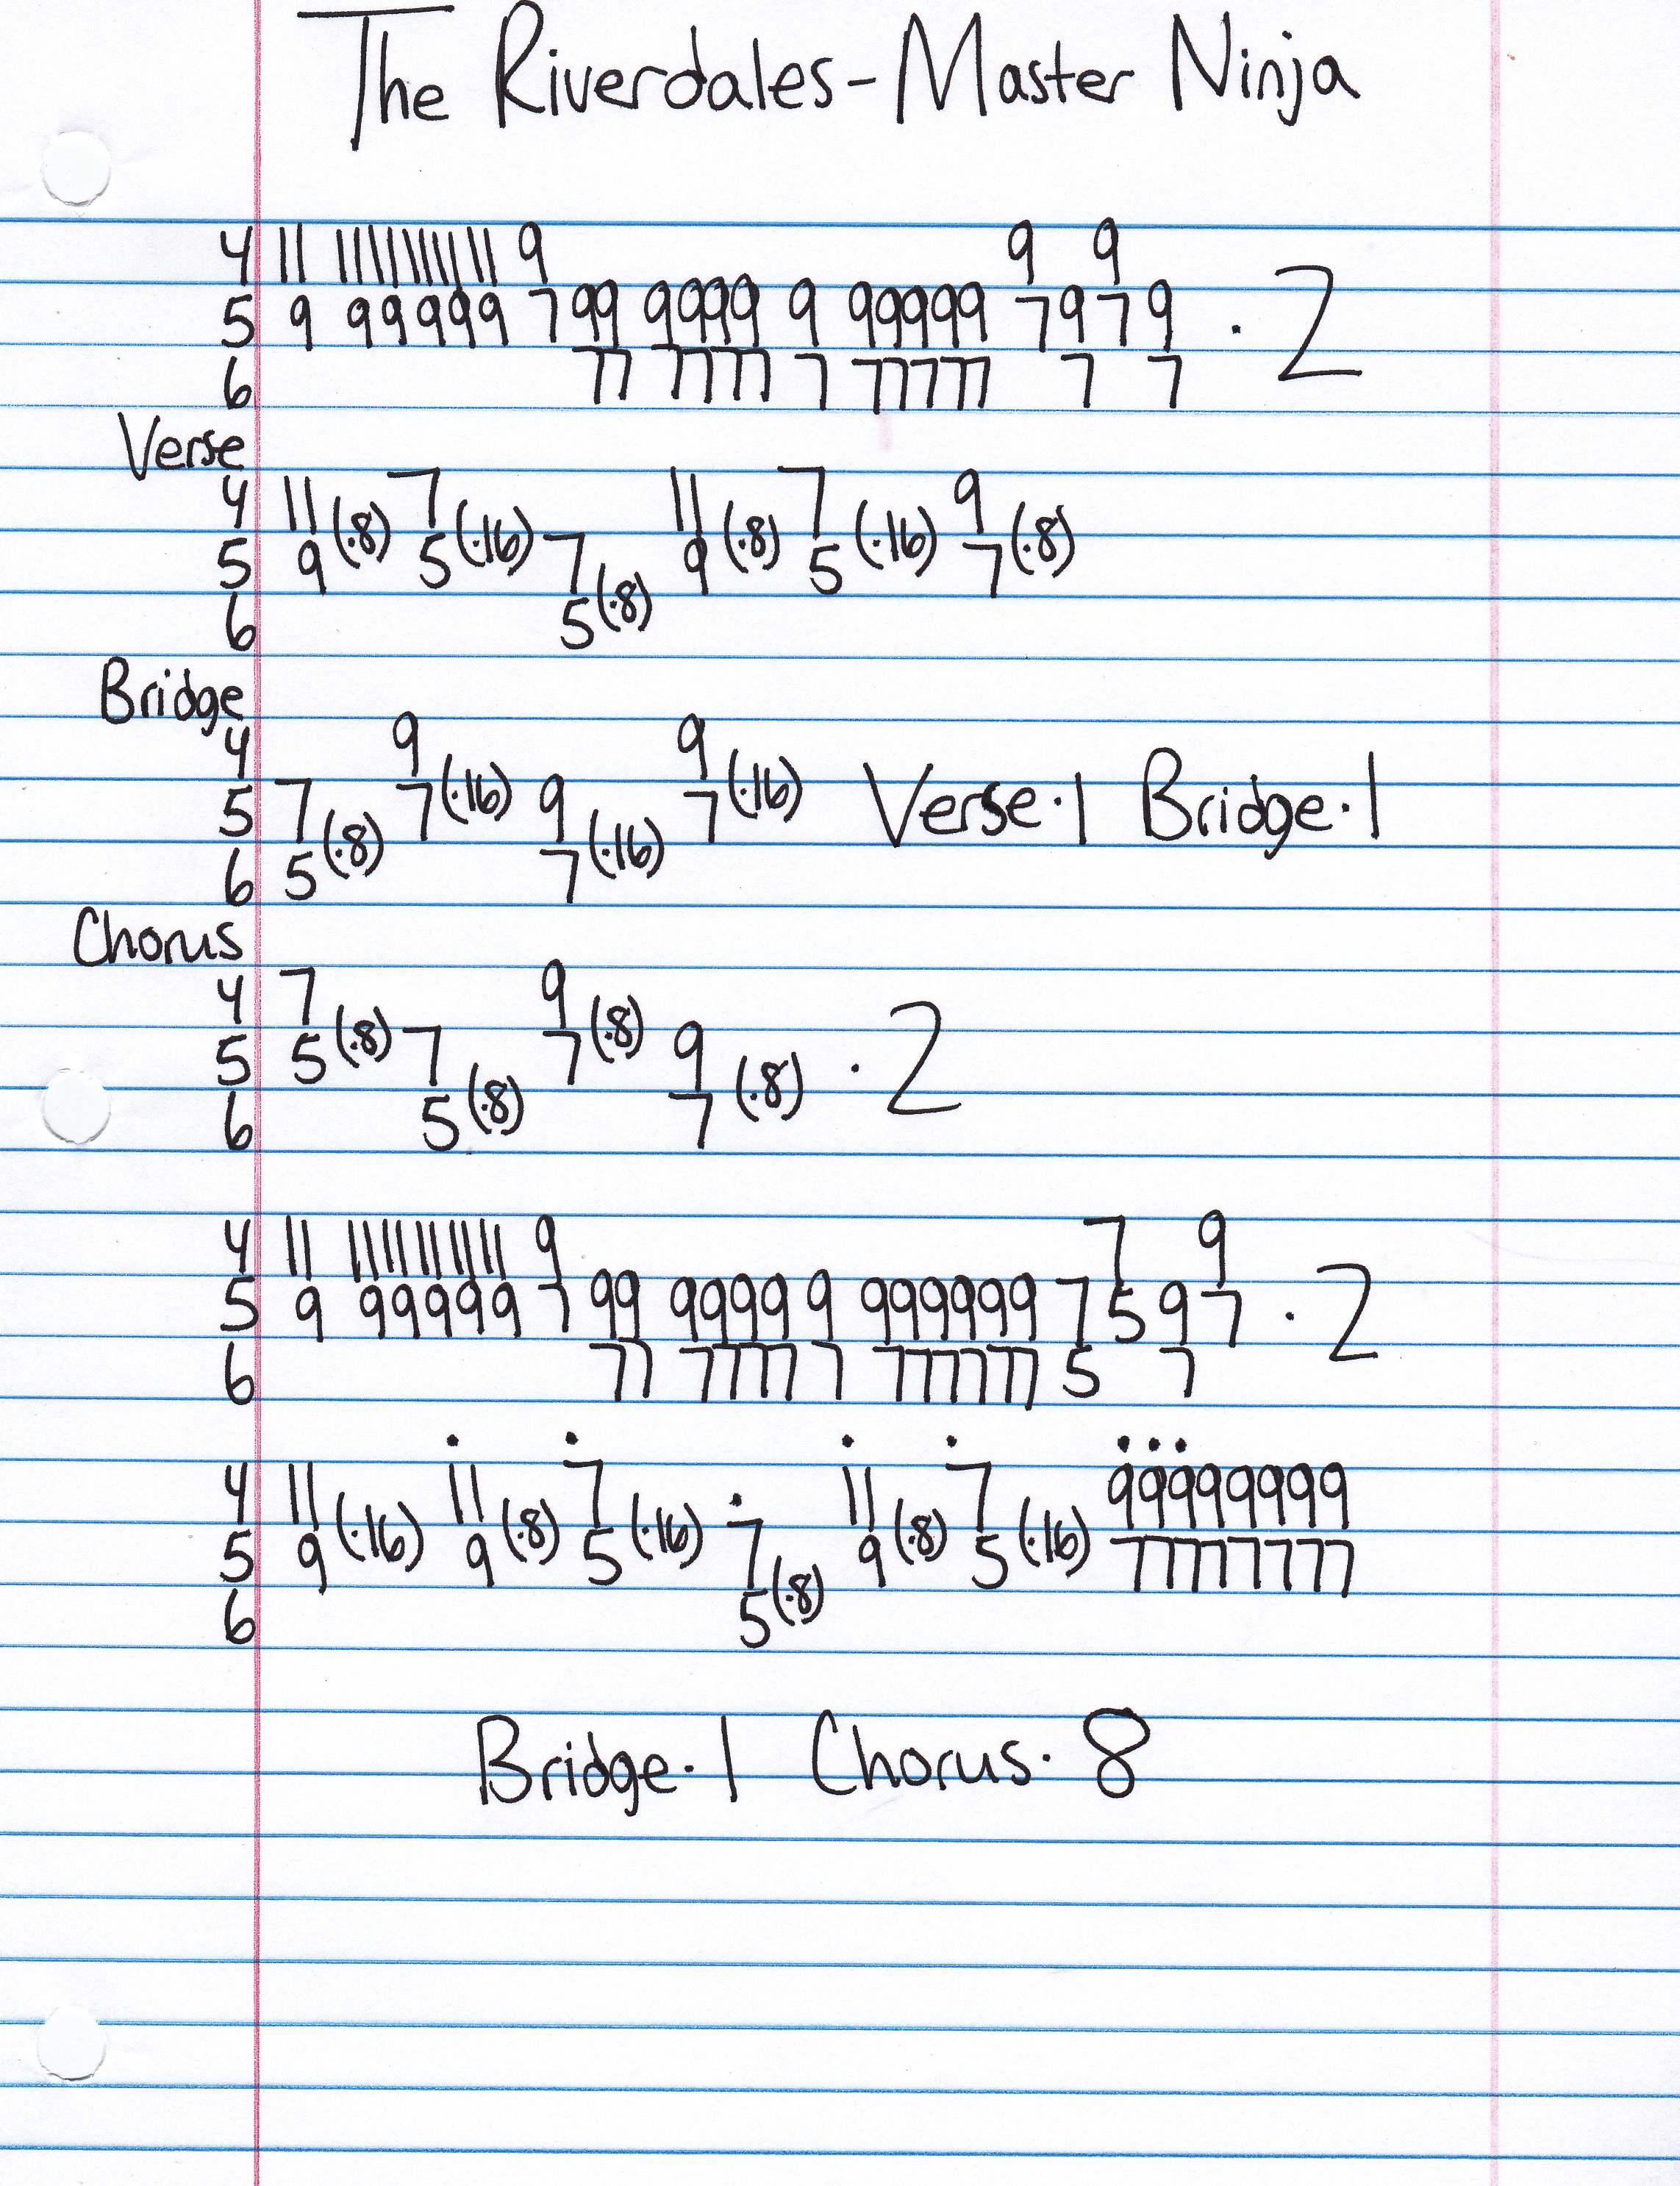 The Riverdales - Master Ninja
4 11 11 11 11 11 11 9 9 9
5 9 9 9 9 9 9 7 9 9 9 9 9 9 9 9 9 9 9 9 7 9 7 9 · 2
6 7 7 7 7 7 7 7 7 7 7 7 7 7 7
Verse
4 11 7 11 7 9
5 9 (·8) 5 (·16) 7 9 (·8) 5 (·16) 7 (·8)
6 5 (·8)
Bridge
4 9 9
5 7 7 (·16) 9 7 (·16) Verse·1 Bridge·1
6 5 (·8) 7 (·16)
Chorus
4 7 9
5 5 (·8) 7 7 (·8) 9 · 2
6 5 (·8) 7 (·8)
4 11 11 11 11 11 11 9 7 9
5 9 9 9 9 9 9 7 9 9 9 9 9 9 9 9 9 9 9 9 9 7 5 9 7 · 2
6 7 7 7 7 7 7 7 7 7 7 7 7 7 5 7
· · · · · · ·
4 11 11 7 · 11 7 9 9 9 9 9 9 9 9
5 9 (·16) 9 (·8) 5 (·16) 7 9 (·8) 5 (·16) 7 7 7 7 7 7 7 7
6 5 (·8)
Bridge·1 Chorus·8